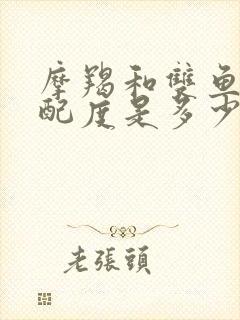 摩羯和雙魚
配度是多少
老張頭